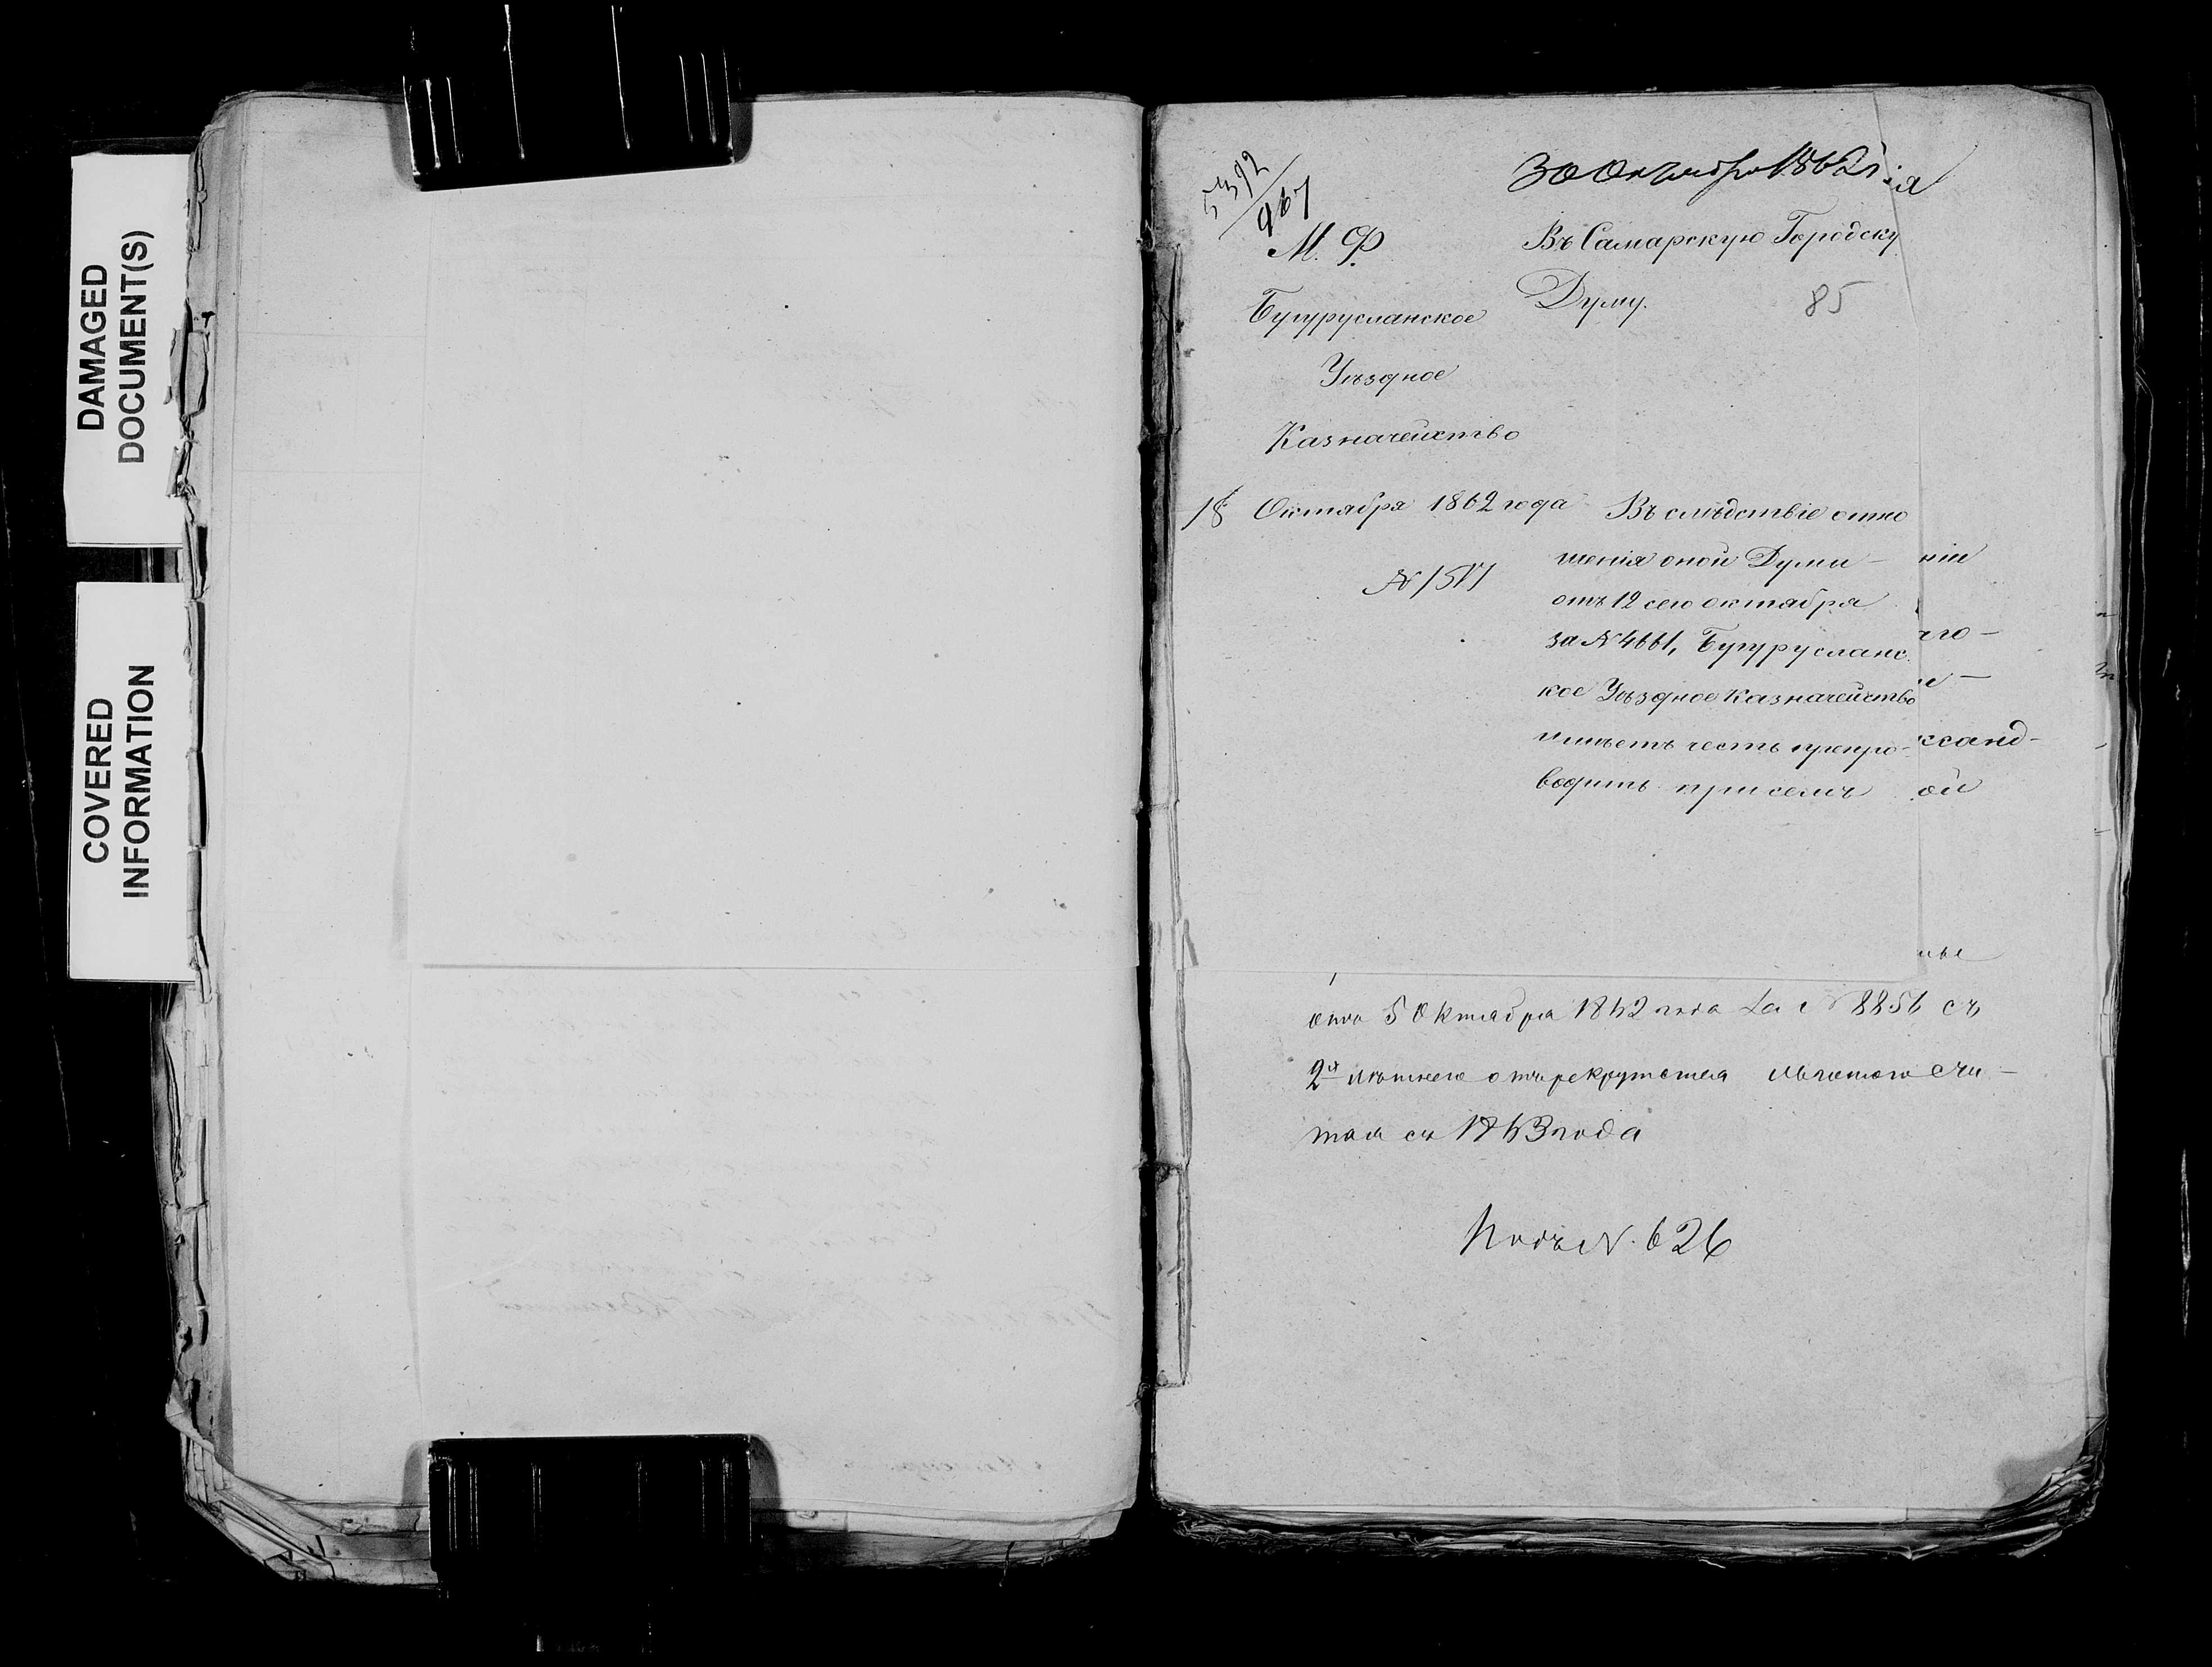 DAMAGED
DOCUMENT(S)
COVERED
INFORMATION
5392
967
30 Октября 1862 г.
М. Ф.
Бугурусланское
Уѣздное
Казначейство
18 Октября 1862 года
№ 1517
Въ Самарскую Городску
Думу.
85
Въ слѣдствіе отно
шенія оной Думы –
отъ 12 сего октября
за № 4661, Бугуруслан
ское Уѣздное Казначейство
имѣетъ честь препро-
водить при семъ
нiи
аго –
ксанд-
ой
ные
отъ 5 Октября 1862 года за № 8856 съ
2х лѣтнею отъ рекрутства льготою счи –
тая съ 1863 года
Подъ № 626